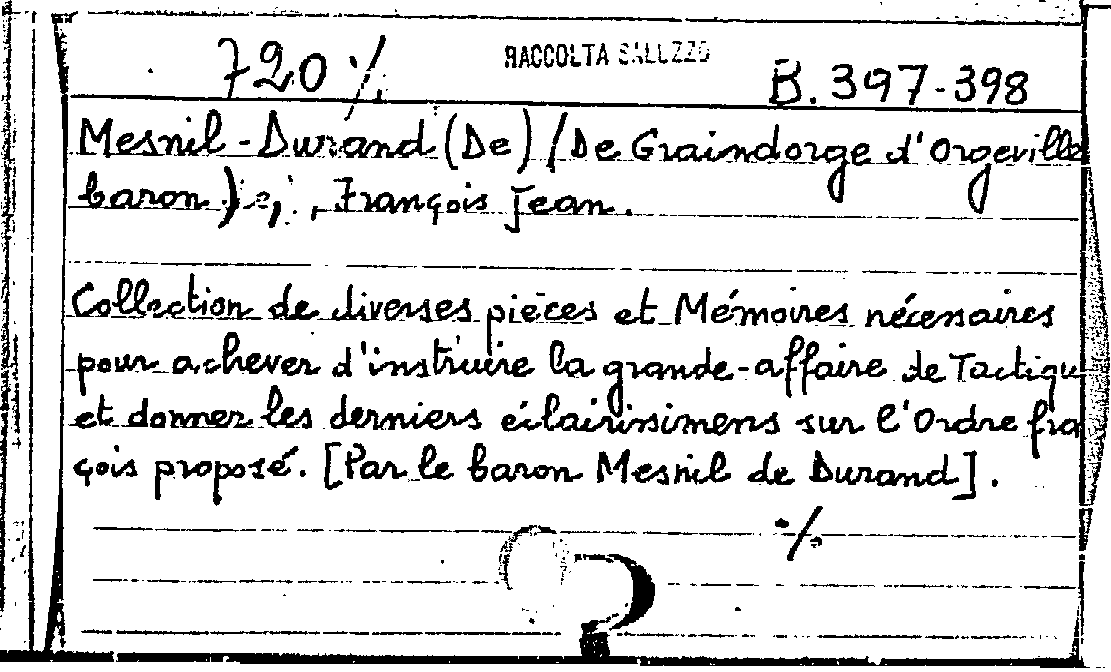 720 ·/.
RACCOLTA SALUZZO
B. 397-398
Mesnil-Durand (De) (De Graindorge d'Orgeville
baron), François Jean.
Collection de diverses pièces et Mémoires nécessaires
pour achever d'instruire la grande-affaire de Tactiqu
et donner les derniers éclairissimens sur l'Ordre fra
çois proposé. [Par le baron Mesnil de Durand].
·/.